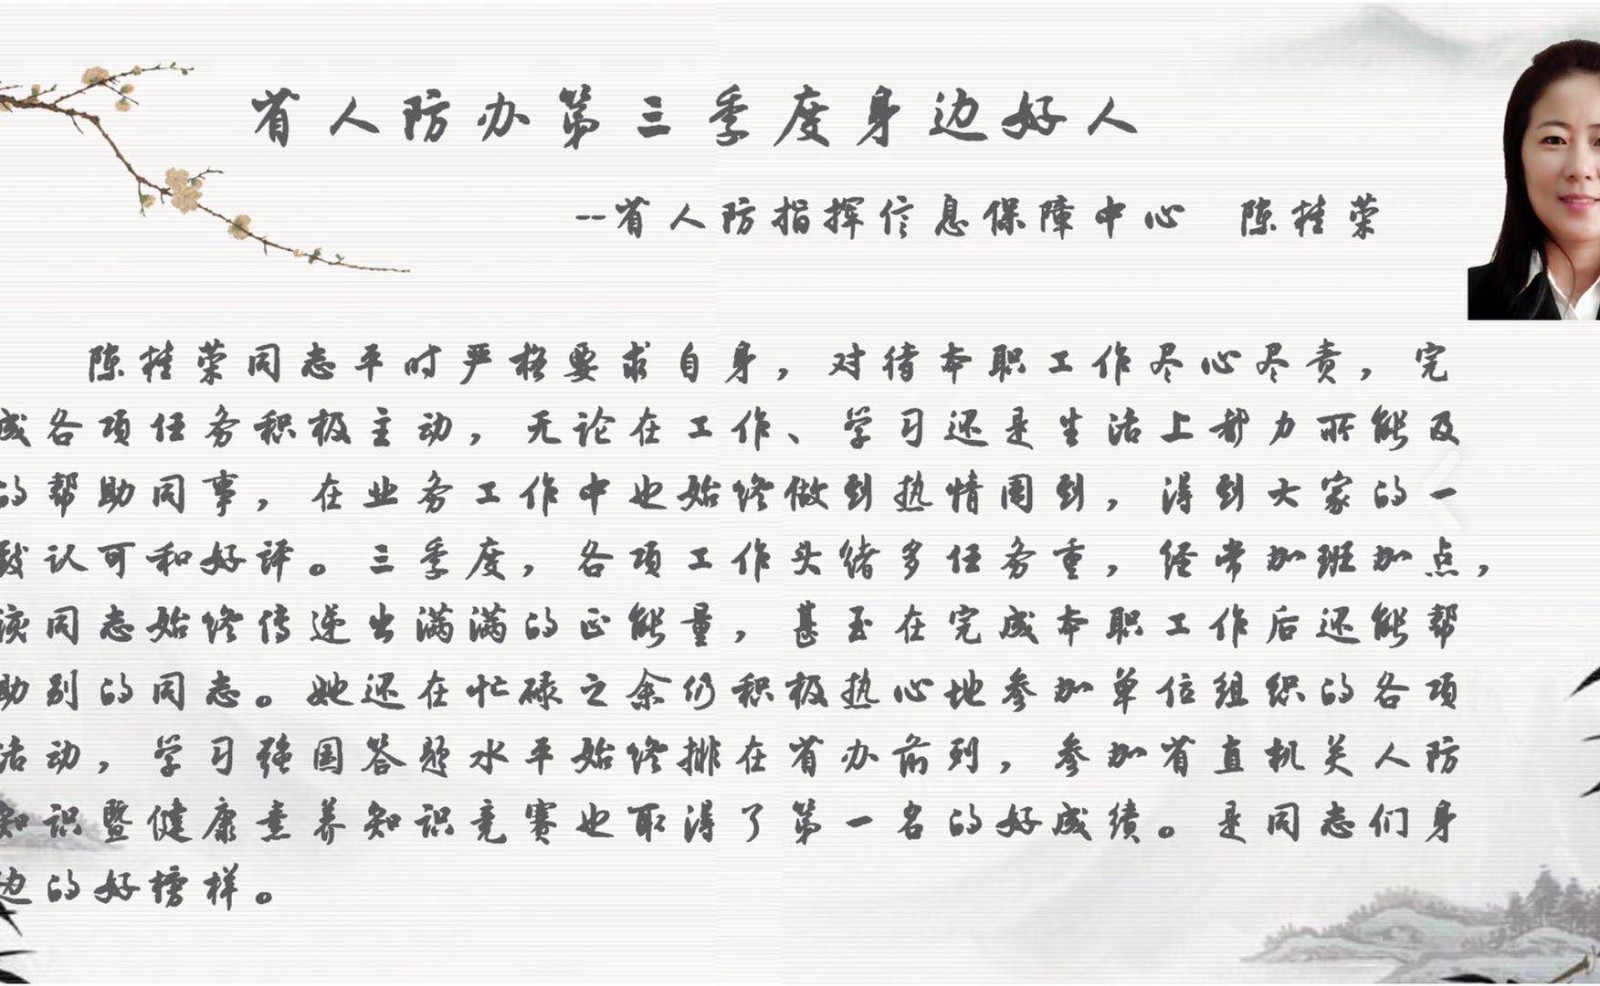 省人防办第三季度身边好人
--省人防指挥信息保障中心 陈桂荣
陈桂荣同志平时严格要求自身，对待本职工作尽心尽责，完
成各项任务积极主动，无论在工作、学习还是生活上都力所能及
的帮助同事，在业务工作中也始终做到热情周到，得到大家的一
致认可和好评。三季度，各项工作头绪多任务重，经常加班加点，
该同志始终传递出满满的正能量，甚至在完成本职工作后还能帮
助别的同志。她还在忙碌之余仍积极热心地参加单位组织的各项
活动，学习强国答题水平始终排在省办前列，参加省直机关人防
知识暨健康素养知识竞赛也取得了第一名的好成绩。是同志们身
边的好榜样。